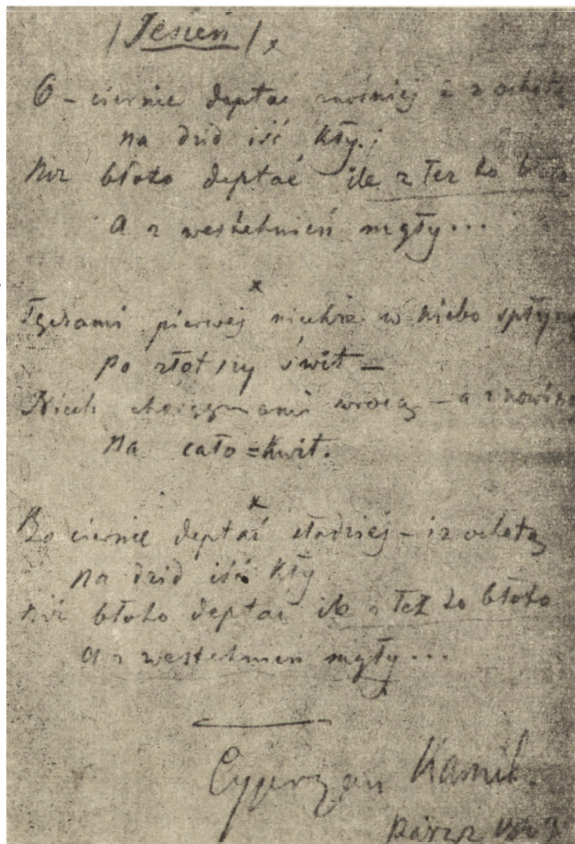 /Jesień/,
O – ciernie deptać znośniej i z ochotą
na dzid iść kły;
Niż błoto deptać ile z łez to błoto
A z westchnień mgły...
x
Tęczami pierwej niechże w niebo spłyną
po złotszy świt –
Niech chorągwiami wrócą – a z nowiną
na cało=kwit.
x
Bo ciernie deptać słodziej – i z ochotą
na dzid iść kły
Niż błoto deptać ile z łez to błoto
A z westchnień mgły...
Cyprian